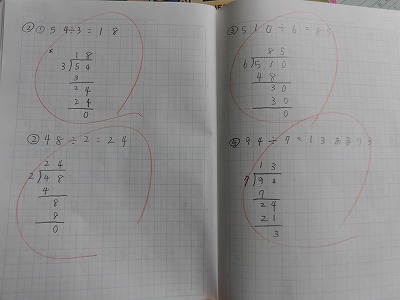 ② ① 54÷3=18
18
3)54
3
24
24
0
② 48÷2=24
24
2)48
4
8
8
0
③ 510÷6=85
85
6)510
48
30
30
0
④ 94÷7=13あまり3
13
7)94
7
24
21
3